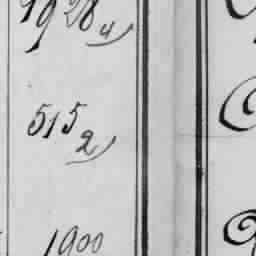 1928 4)
515 2)
1900